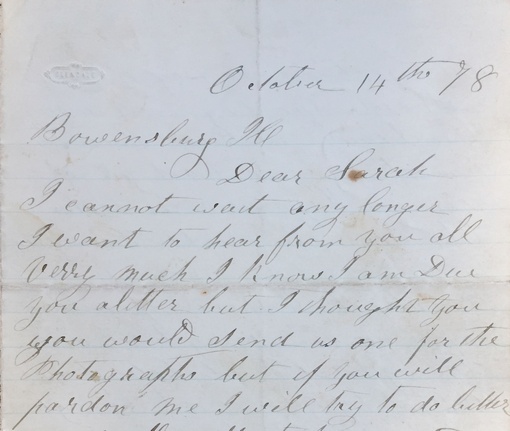 October 14th 78
Bowensburg Ill
Dear Sarah
I cannot wait any longer
I want to hear from you all
verry much I know I am Due
you aletter but I thought you
you would send us one for the
Photographs but if you will
pardon me I will try to do better